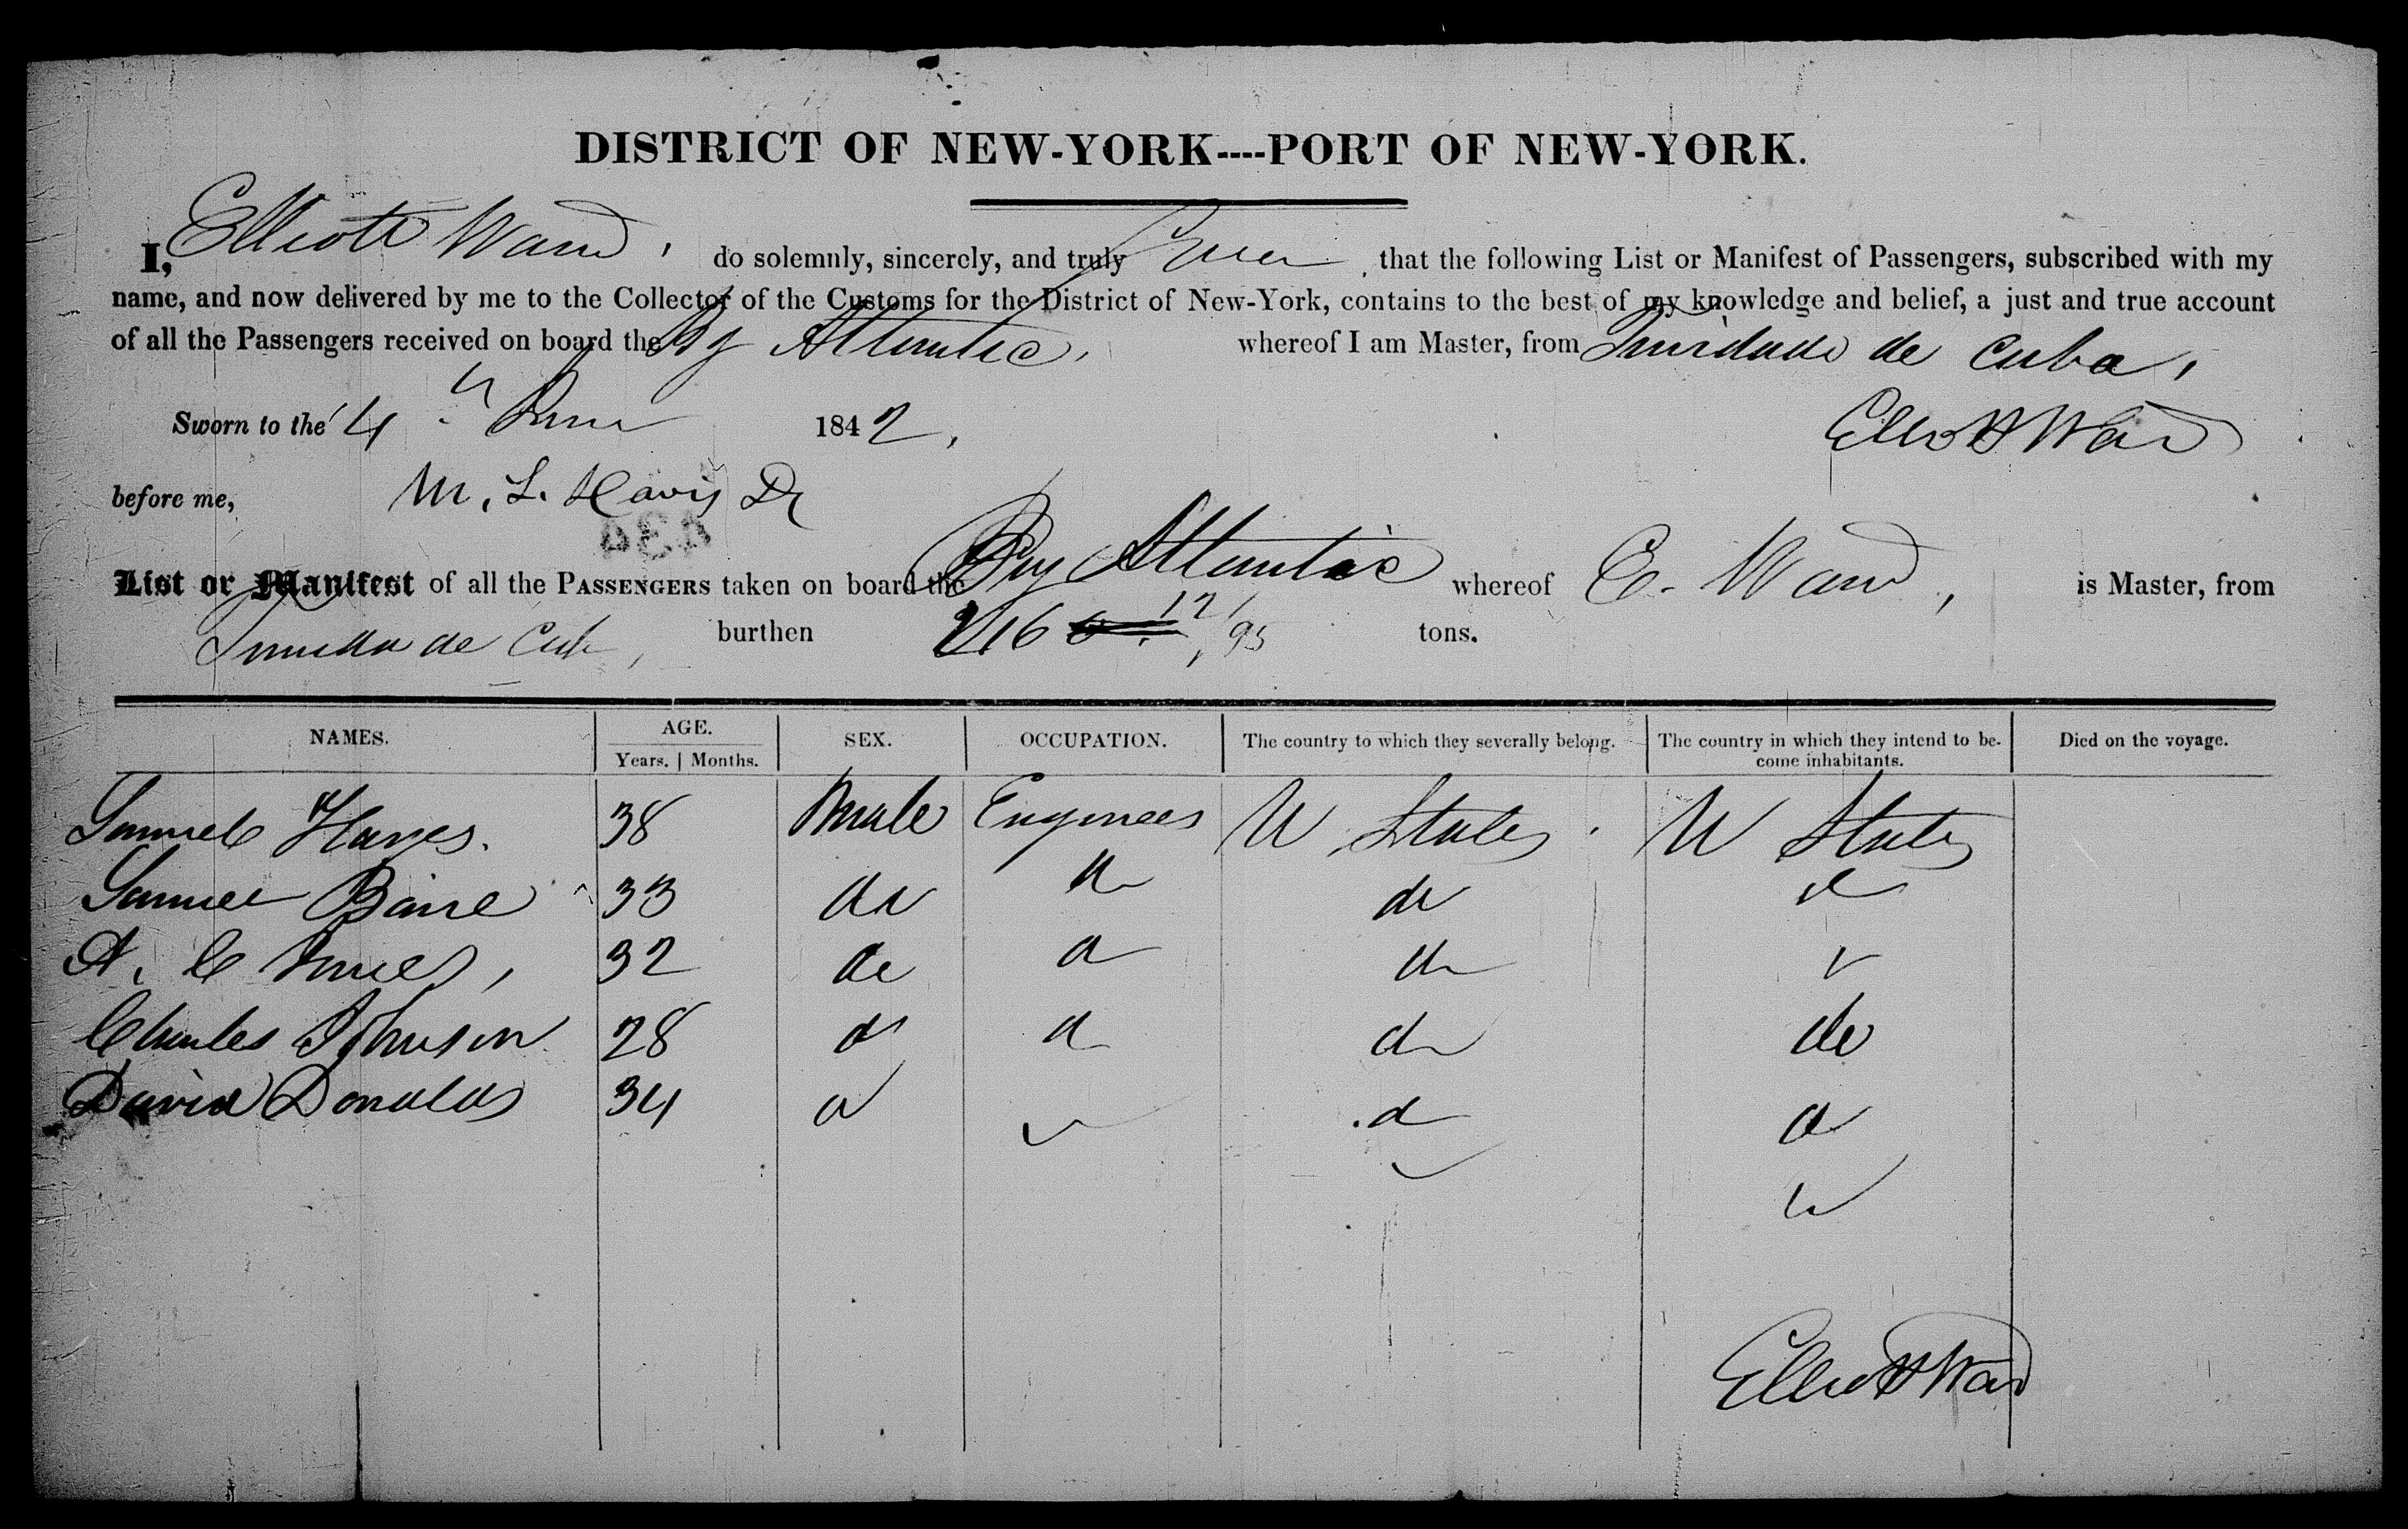 DISTRICT OF NEW-YORK----PORT OF NEW-YORK.
I, Elliott Ward, do solemnly, sincerely, and truly Swear that the following List or Manifest of Passengers, subscribed with my
name, and now delivered by me to the Collector of the Customs for the District of New-York, contains to the best of my knowledge and belief, a just and true account
of all the Passengers received on board the Brig Atlantic, whereof I am Master, from Trinidado de Cuba,
Sworn to the 4 June 1842, Elliott Ward
before me, M. L. Davis
434
List or Manifest of all the PASSENGERS taken on board the Brig Atlantic whereof E. Ward, is Master, from
Trinidad de Cuba, burthen 216 12/95 tons.
NAMES. AGE. SEX. OCCUPATION. The country to which they severally belong. The country in which they intend to be- Died on the voyage.
Years. | Months. come inhabitants.
Samuel 38 Male Engineer U States U States
Samuel 33 do do do do
A. C 32 do do do
Charles Johnson 28 do do do do
David Donalds 34 do do do
Elliott Ward